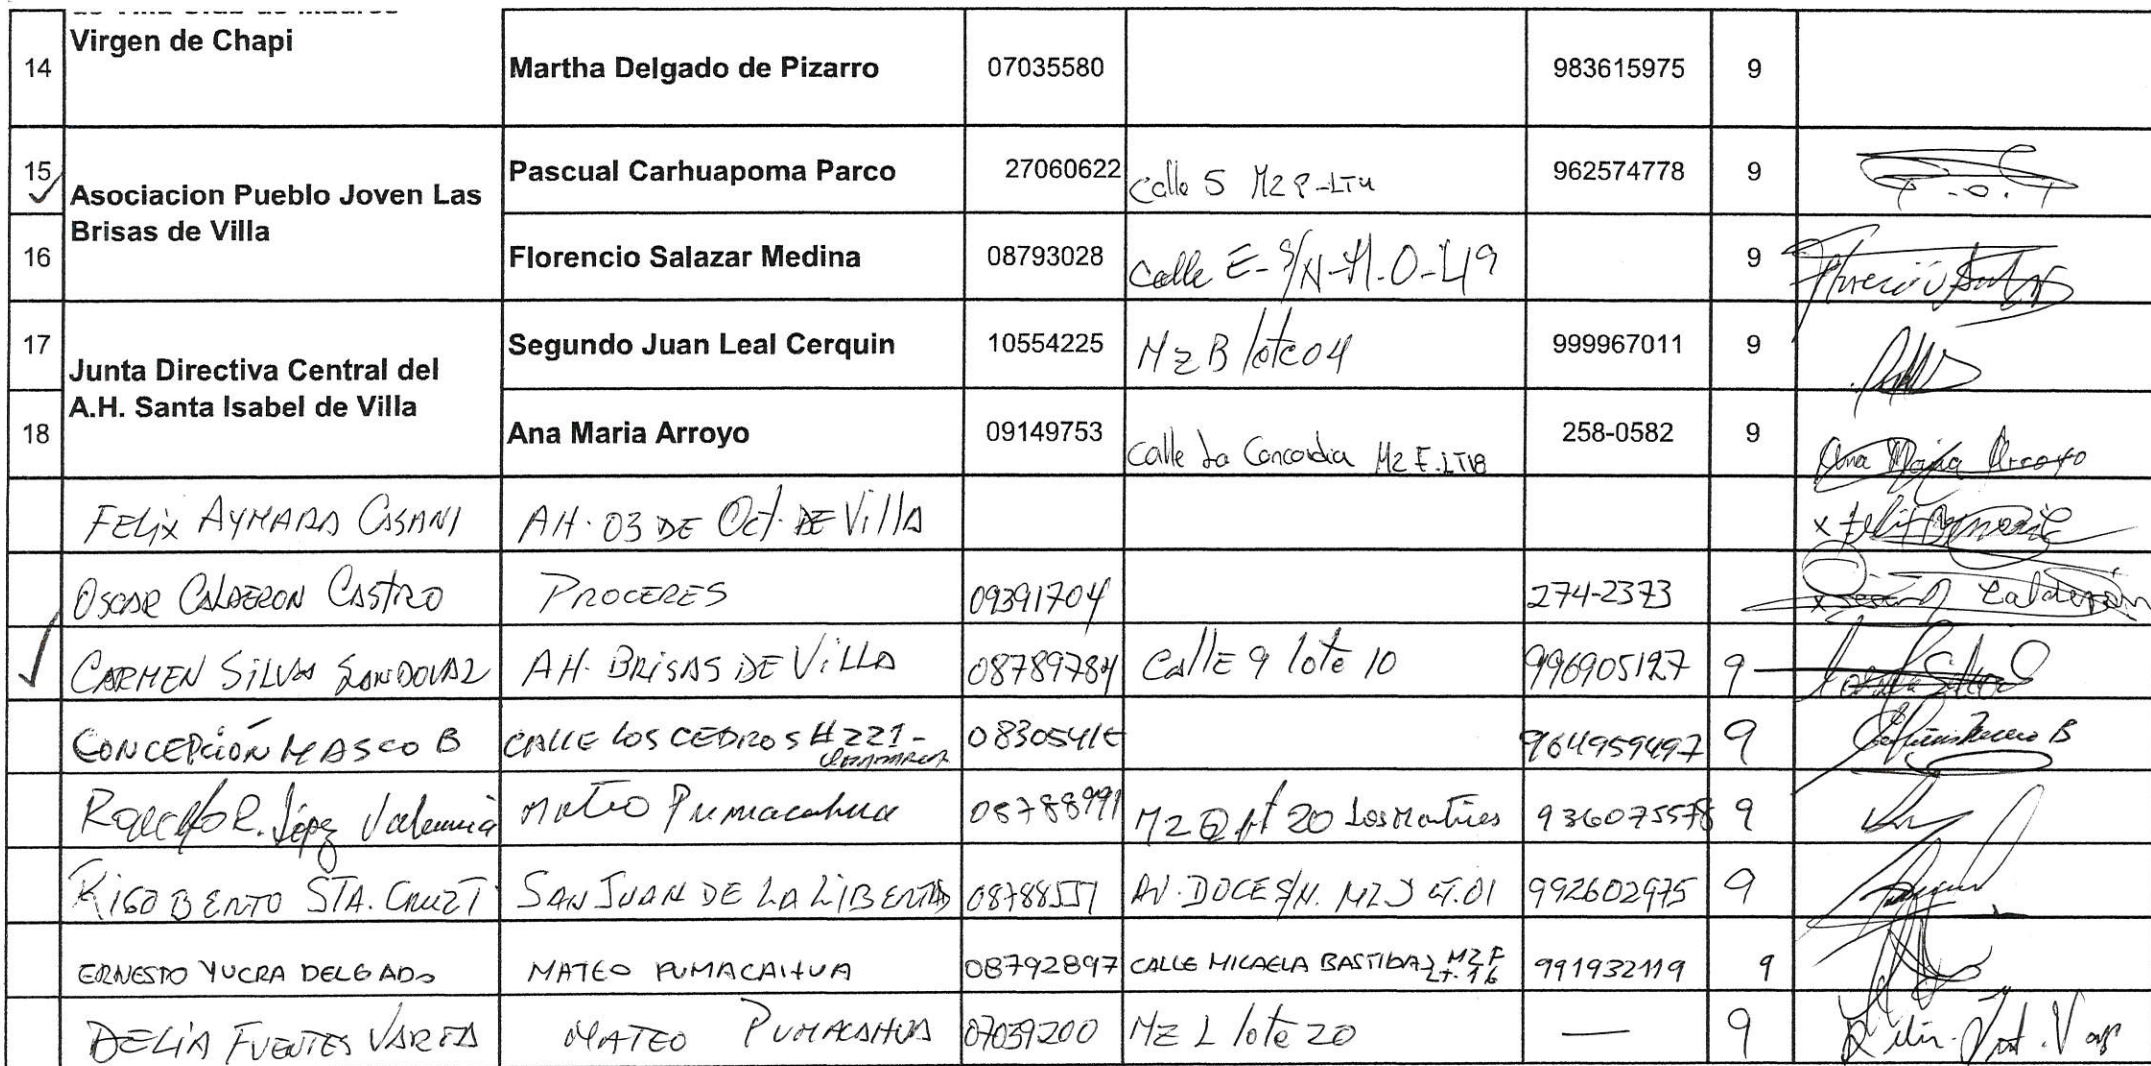 Virgen de Chapi
14 Martha Delgado de Pizarro 07035580 983615975 9
15 Asociacion Pueblo Joven Las Brisas de Villa Pascual Carhuapoma Parco 27060622 Calle 5 Mz P-LT4 962574778 9
16 Florencio Salazar Medina 08793028 Calle E- S/N 9
17 Junta Directiva Central del A.H. Santa Isabel de Villa Segundo Juan Leal Cerquin 10554225 Mz B lote 04 999967011 9
18 Ana Maria Arroyo 09149753 Calle La Concordia Mz F. LT18 258-0582 9 Ana Maria Arroyo
FELIX AYMARA CASANI AH. 03 DE Oct. DE VillA
OSCAR CALDERON CASTRO PROCERES 09391704 274-2373 Calderón
CARMEN SILVA SANDOVAL AH. BRISAS DE VILLA 08789784 CallE 9 lote 10 996905127 9
CONCEPCIÓN MASCO B CALLE LOS CEDROS # 221- 964959497 9
López Valencia Mateo Pumacahua 08788991 Mz Q Lt 20 Los Martires 936075578 9
RIGOBERTO STA. CRUZ T SAN JUAN DE LA LIBERTAD AV. DOCE S/N. MZ J LT.01 992602975 9
ERNESTO YUCRA DELGADO MATEO PUMACAHUA 08792897 CALLE MICAELA BASTIDAS MZ F LT. 16 991932119 9
DELIA FUENTES MATEO PUMACAHUA 07039200 MZ L lote 20 — 9